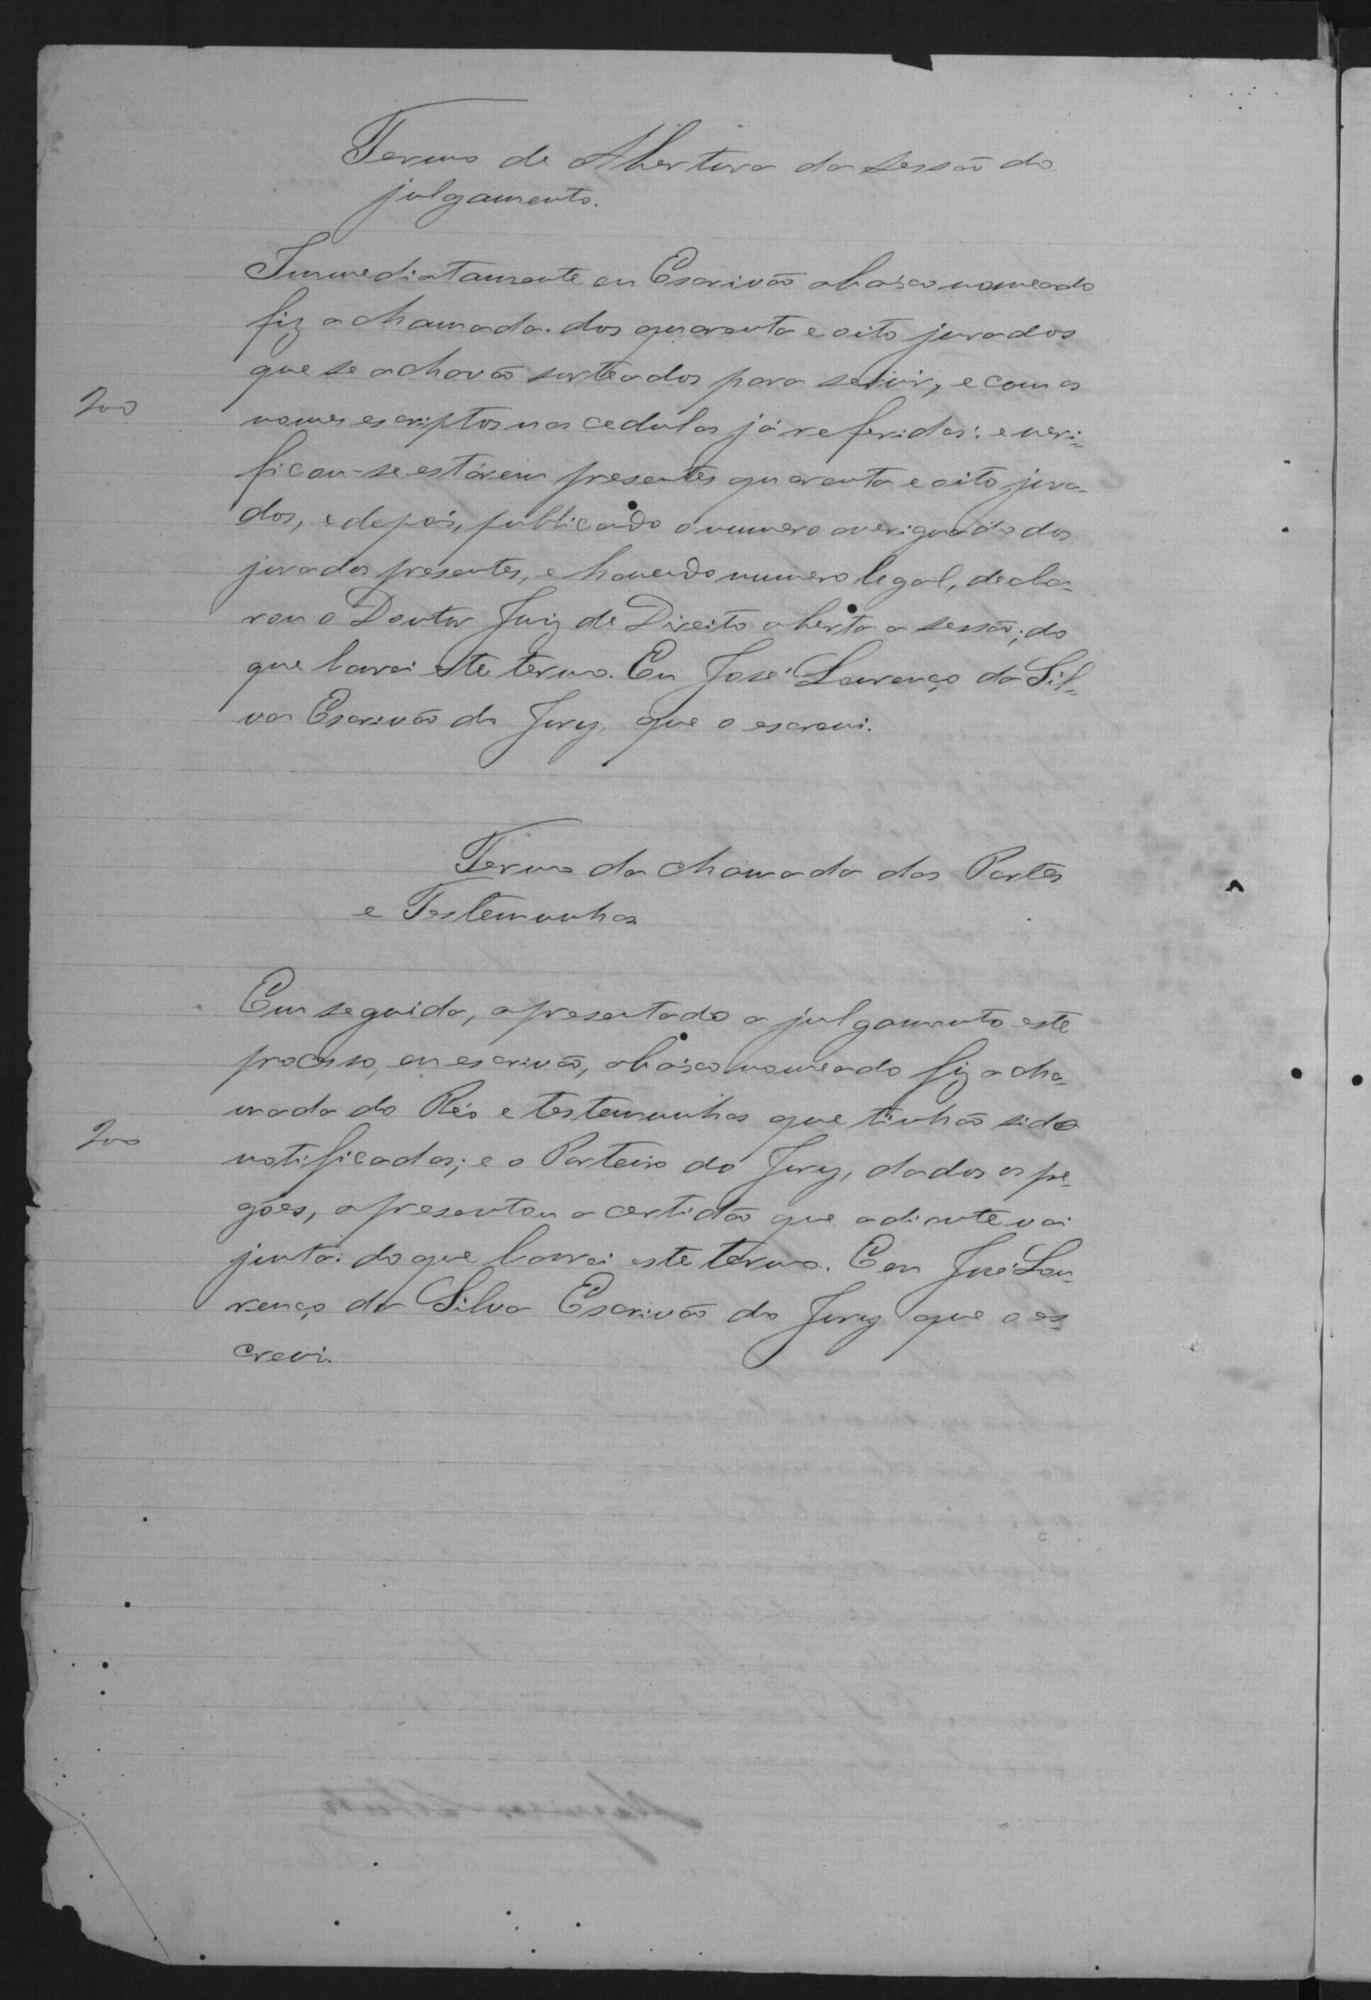 Termo de Abertura da sessão do
julgamento.
Immediatamente eu Escrivão abaixo nomeado
fiz a chamada dos quarenta e oito jurados
que se achavão sorteados para servir, e com os
200
nomes escriptos nas cedulas já referidas: e veri-
ficou-se estárem presentes quarenta e oito jura-
dos, e depois, publicado o numero averiguado dos
jurados presentes, e havendo numero legal, decla-
rou o Doutor Juiz de Direito aberta a sessão; do
que lavrei este termo. Eu José Lourenço da Sil-
va Escrivão do Jury, que o escrevi.
Termo da chamada das Partes
e Testemunhas
Em seguida, apresentado a julgamento este
processo, eu escrivão, abaixo nomeado fiz a cha-
mada do Réo e testemunhas que tinhão sido
200
notificadas; e o Porteiro do Jury, dados os pe-
gões, apresentou a certidão que adiante vai
junta: do que lavrei este termo. Eu José Lou-
renço da Silva Escrivão do Jury que o es-
crevi.